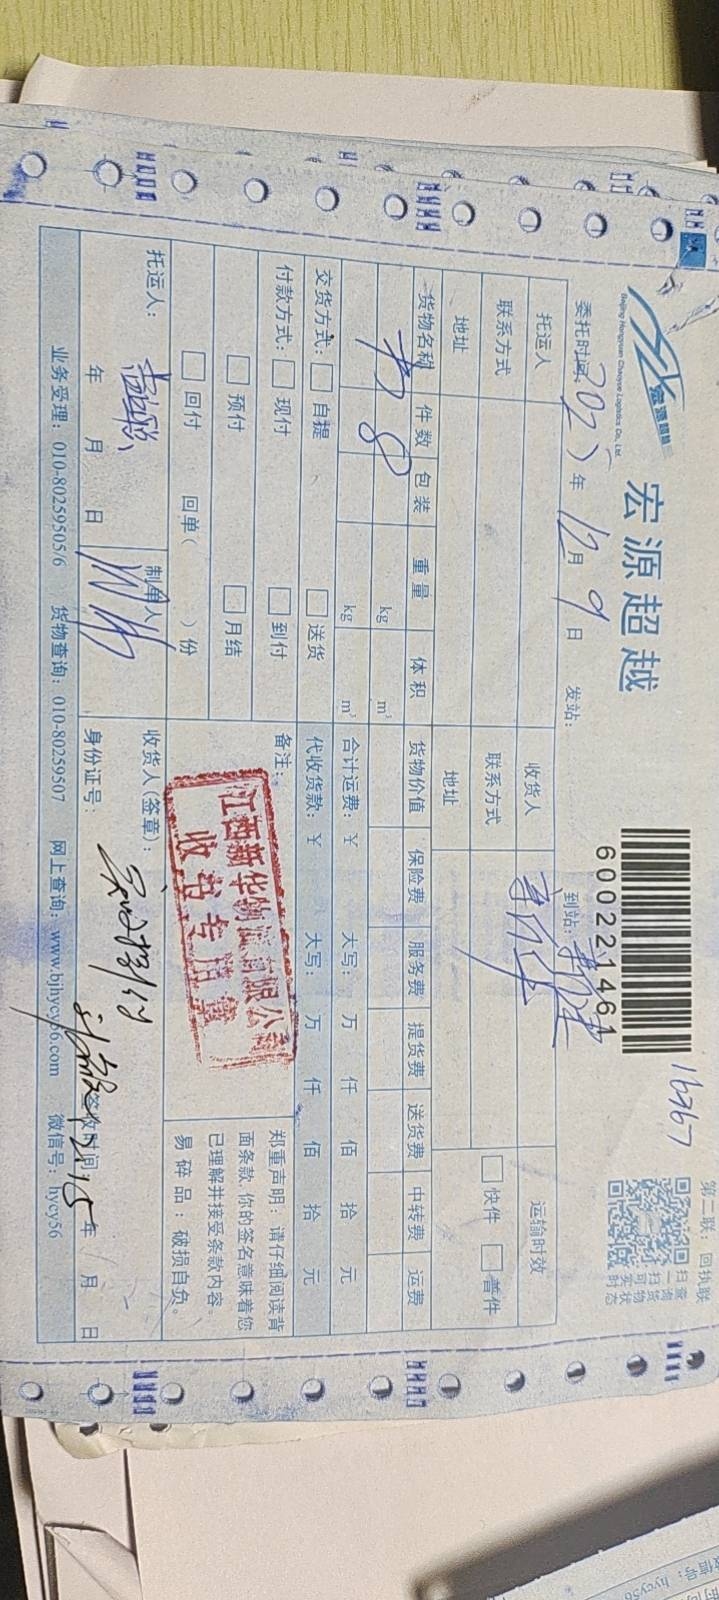 宏源超越
Beijing Hongyuan Chaoyue Logistics Co., Ltd.
宏源超越
600221461
16767
第二联：回执联
扫一扫可实时
查询货物状态
委托时间: 年 12 月 9 日 发站: 到站:
托运人 收货人 新华 运输时效
联系方式 联系方式 快件 普件
地址 地址
货物名称 件数 包装 重量 体积 货物价值 保险费 服务费 提货费 送货费 中转费 运费
书 8 kg m³
kg m³ 合计运费: ¥ 大写: 万 仟 佰 拾 元
交货方式: 自提 送货 代收货款: ¥ 大写: 万 仟 佰 拾 元
付款方式: 现付 到付 备注:
预付 月结
回付 回单( )份
江西新华物流有限公司
收货专用章
郑重声明：请仔细阅读背
面条款,你的签名意味着您
已理解并接受条款内容。
易碎品：破损自负。
托运人: 制单人 收货人(签章):
年 月 日 身份证号: 签收时间: 年 月 日
12.15
业务受理: 010-80259505/6 货物查询: 010-80259507 网上查询: www.bjhycy56.com 微信号: hycy56
微信号: hycy56